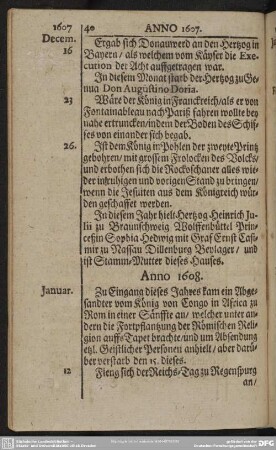 1607 40 ANNO 1607.
Decem. Ergab sich Donauwerd an den Hertzog in
16 Bayern/ als welchem vom Käyser die Exe-
cution der Acht auffgetragen war.
In diesem Monat starb der Hertzog zu Ge-
nua Don Augustino Doria.
23 Wäre der König in Franckreich/ als er von
Fontainableau nach Pariß fahren wollte bey
nahe ertruncken/ indem der Boden des Schif-
fes von einander sich begab.
26. Ist dem König in Pohlen der zweyte Printz
gebohren/ mit grossem Frolocken des Volcks/
und erbothen sich die Rockoschaner alles wie-
der in ruhigen und vorigen Stand zu bringen/
wenn die Jesuiten aus dem Königreich wür-
den geschaffet werden.
In diesem Jahr hielt Hertzog Heinrich Ju-
lii zu Braunschweig Wolffenbüttel Prin-
ceßin Sophia Hedwig mit Graf Ernst Casi-
mir zu Nassau Dillenburg Beylager/ und
ist Stamm-Mutter dieses Hauses.
Anno 1608.
Januar. Zu Eingang dieses Jahres kam ein Abge-
sandter vom König von Congo in Africa zu
Rom in einer Sänffte an/ welcher unter an-
dern die Fortpflantzung der Römischen Reli-
gion auffs Tapet brachte/ und um Absendung
etzl. Geistlicher Personen anhielt/ aber darü-
ber verstarb den 15. dieses.
12 Fieng sich der Reichs-Tag zu Regenspurg
an/